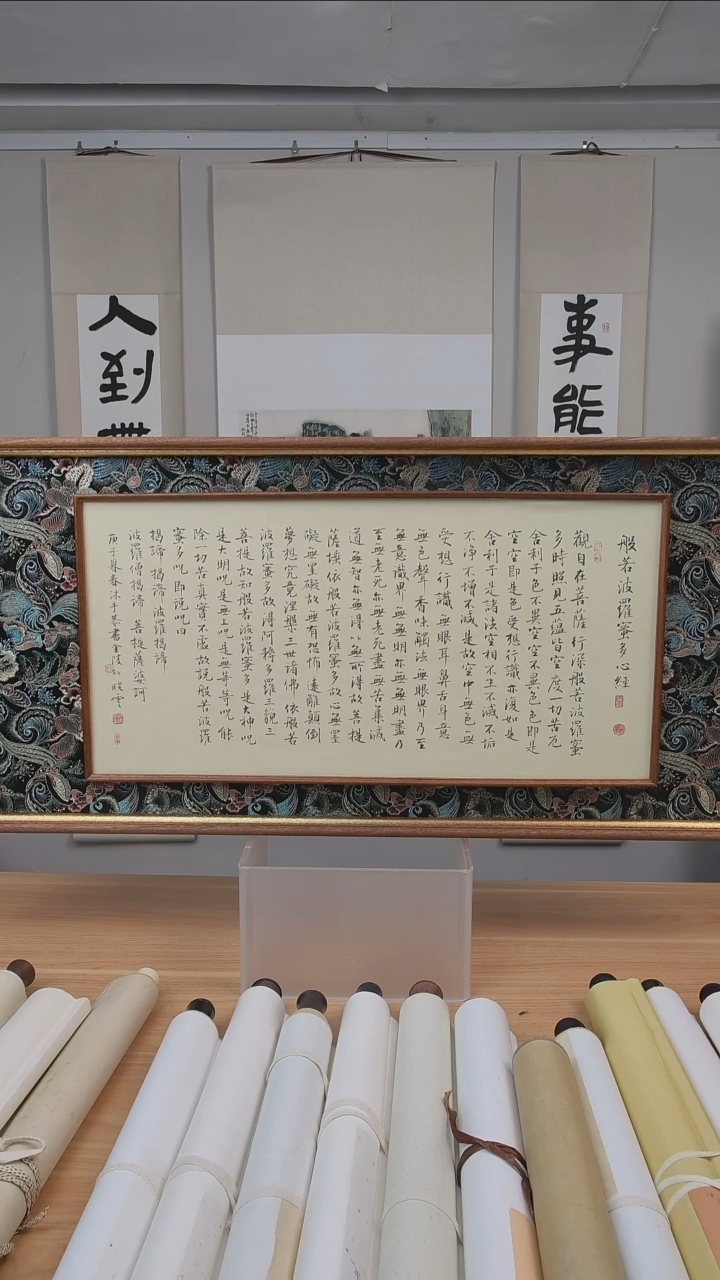 事能
人到
般若波羅蜜多心經
觀自在菩薩行深般若波羅蜜
多時照見五蘊皆空度一切苦厄
舍利子色不異空空不異色色即是
空空即是色受想行識亦復如是
舍利子是諸法空相不生不滅不垢
不淨不增不減是故空中無色無
受想行識無眼耳鼻舌身意
無色聲香味觸法無眼界乃至
無意識界無無明亦無無明盡乃
至無老死亦無老死盡無苦集滅
道無智亦無得以無所得故菩提
薩埵依般若波羅蜜多故心無罣
礙無罣礙故無有恐怖遠離顛倒
夢想究竟涅槃三世諸佛依般若
波羅蜜多故得阿耨多羅三藐三
菩提故知般若波羅蜜多是大神呪
是大明呪是無上呪是無等等呪能
除一切苦真實不虛故說般若波羅
蜜多呪即說呪曰
揭諦揭諦波羅揭諦
波羅僧揭諦菩提薩婆訶
庚子暮春沐手恭書金陵